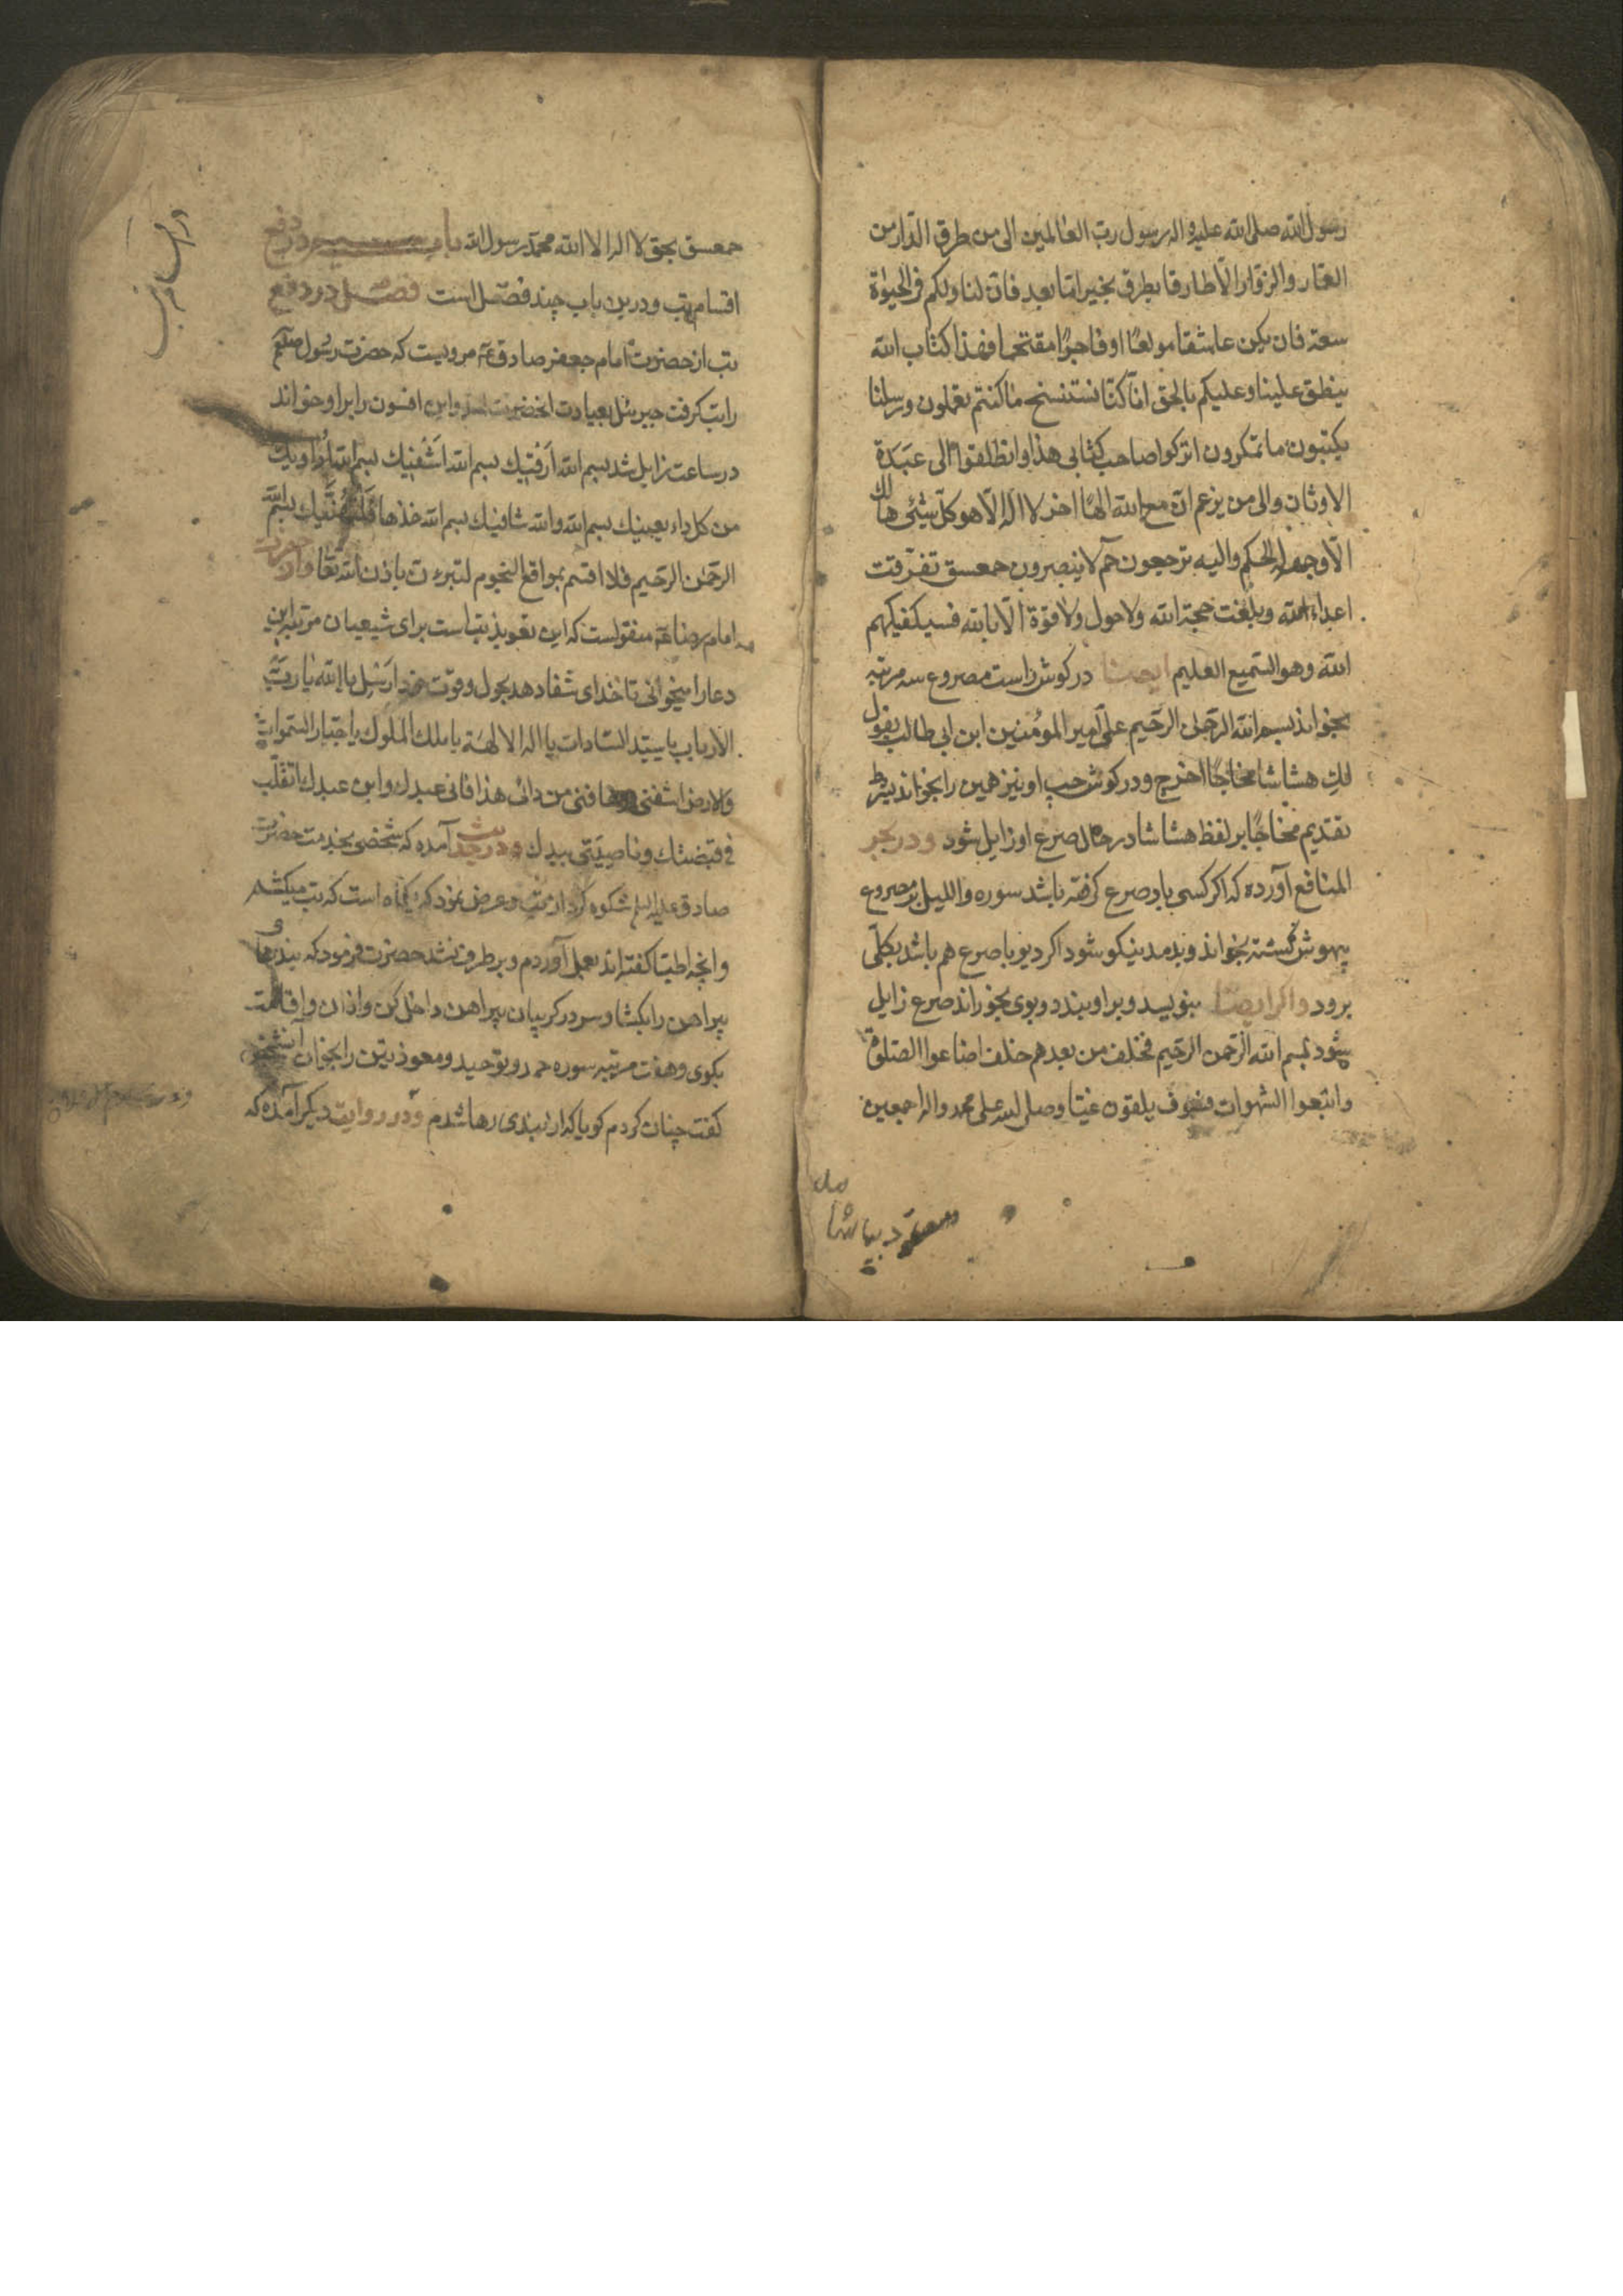 رسول الله صلی الله علیه واله رسول رب العالمین الی من طرق الدار من
العمار والزوار الا طارقا یطرق بخیر اما بعد فان لنا ولکم فی الحیوة
سعة فان یکن عاشقا مولعًا او فاجرًا مقتحما فهذا کتاب الله
ینطق علینا وعلیکم بالحق انا کنا نستنسخ ما کنتم تعملون ورسلنا
یکتبون ما تمکرون اترکوا صاحب کتابی هذا وانطلقوا الی عبدة
الاوثان والی من یزعم ان مع الله الهًا اخر لا اله الا هو کل شیئی هالك
الا وجهه له الحکم والیه ترجعون حم لا ینصرون حمعسق تفرقت
اعداء الله وبلغت حجة الله ولا حول ولا قوة الا بالله فسیکفیکهم
الله وهو السمیع العلیم ایضا در کوش راست مصروع سه مرتبه
بخواند بسم الله الرحمن الرحیم علی امیر المؤمنین ابن ابی طالب یقول
لك هشاشا مخاجًا اخرج ودر کوش چپ او نیز همین را بخواند بشرط
تقدیم مخاجًا بر لفظ هشاشا در حال صرع او زایل شود ودر بحر
المنافع آورده که اکر کسی باد صرع کرفته باشد سوره واللیل بر مصروع
بیهوش کشته بخواند وبدمد نیکو شود اکر دیو با صرع هم باشد بکلی
برود واکر ایضا بنویسد وبر او بندد وبوی بخوراند صرع زایل
شود بسم الله الرحمن الرحیم فخلف من بعدهم خلف اضاعوا الصلوة
واتبعوا الشهوات فسوف یلقون غیا وصلی الله علی محمد واله اجمعین
حمعسق بحق لا اله الا الله محمد رسول الله باب در دفع
اقسام تب ودرین باب چند فصل است فصل در دفع
تب از حضرت امام جعفر صادق ع مرویست که حضرت رسول صلعم
را تب کرفت جبرئیل بعیادت انحضرت امد واین افسون را بر او خواند
در ساعت زایل شد بسم الله ارقیك بسم الله اشفیك بسم الله
من کل داء یعنیك بسم الله والله شافیك بسم الله خذها فلتهنیك بسم الله
الرحمن الرحیم فلا اقسم بمواقع النجوم لتبرءن باذن الله تعا واز حضرت
امام رضا ع منقولست که این تعویذ تب است برای شیعیان مرتبه این
دعا را میخوانی تا خدای شفا دهد بحول وقوت یا الله یا رب
الارباب یا سید السادات یا اله الالهة یا ملك الملوك یا جبار السموات
والارض اشفنی وعافنی من دائی هذا فانی عبدك وابن عبدك اتقلب
فی قبضتك وناصیتی بیدك ودر حدیث آمده که شخصی بخدمت حضرت
صادق علیه السلم شکوه کرد از تب وعرض نمود که یکماه است که تب میکشم
وانچه اطبا کفته اند بعمل آوردم وبرطرف نشد حضرت فرمود که بندهای
پیراهن را بکشا وسر در کریبان پیراهن داخل کن واذان واقامت
بکوی وهفت مرتبه سوره حمد وتوحید ومعوذتین را بخوان آنشخص
کفت چنان کردم کویا که از بندی رها شدم ودر روایت دیکر آمده که